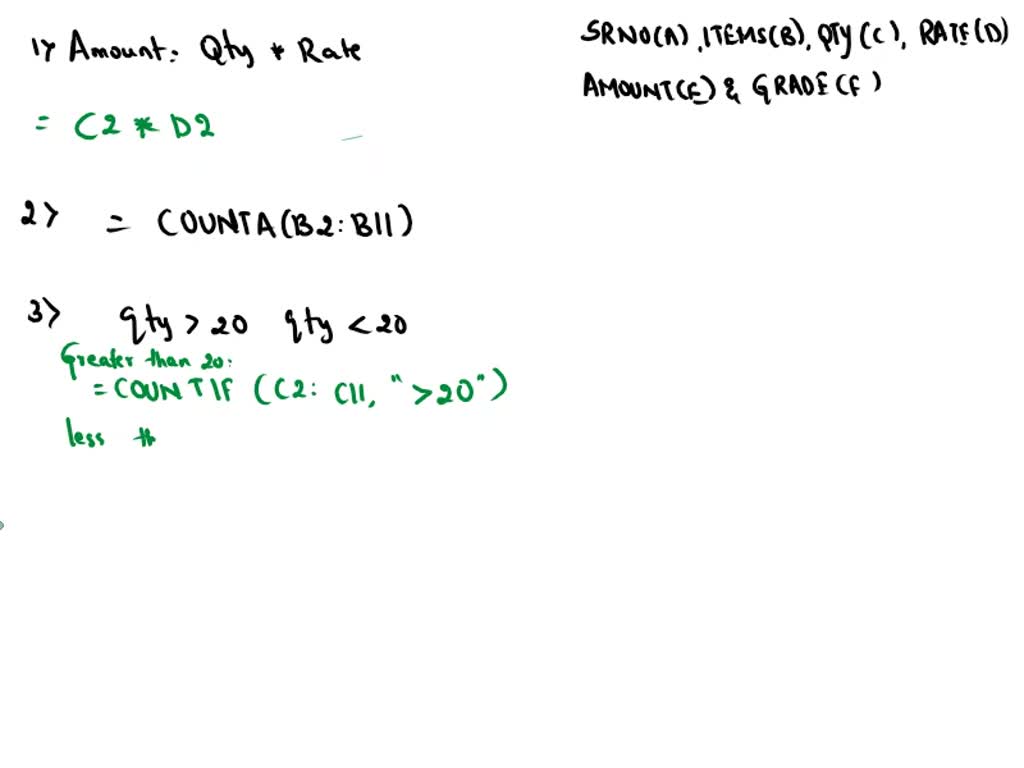 1> Amount: Qty * Rate
SRNO(A), ITEMS(B), QTY(C), RATE(D)
AMOUNT(E) & GRADE(F)
= C2 * D2
2> = COUNTA(B2:B11)
3> qty > 20 qty < 20
Greater than 20:
= COUNTIF (C2: C11, ">20")
less th